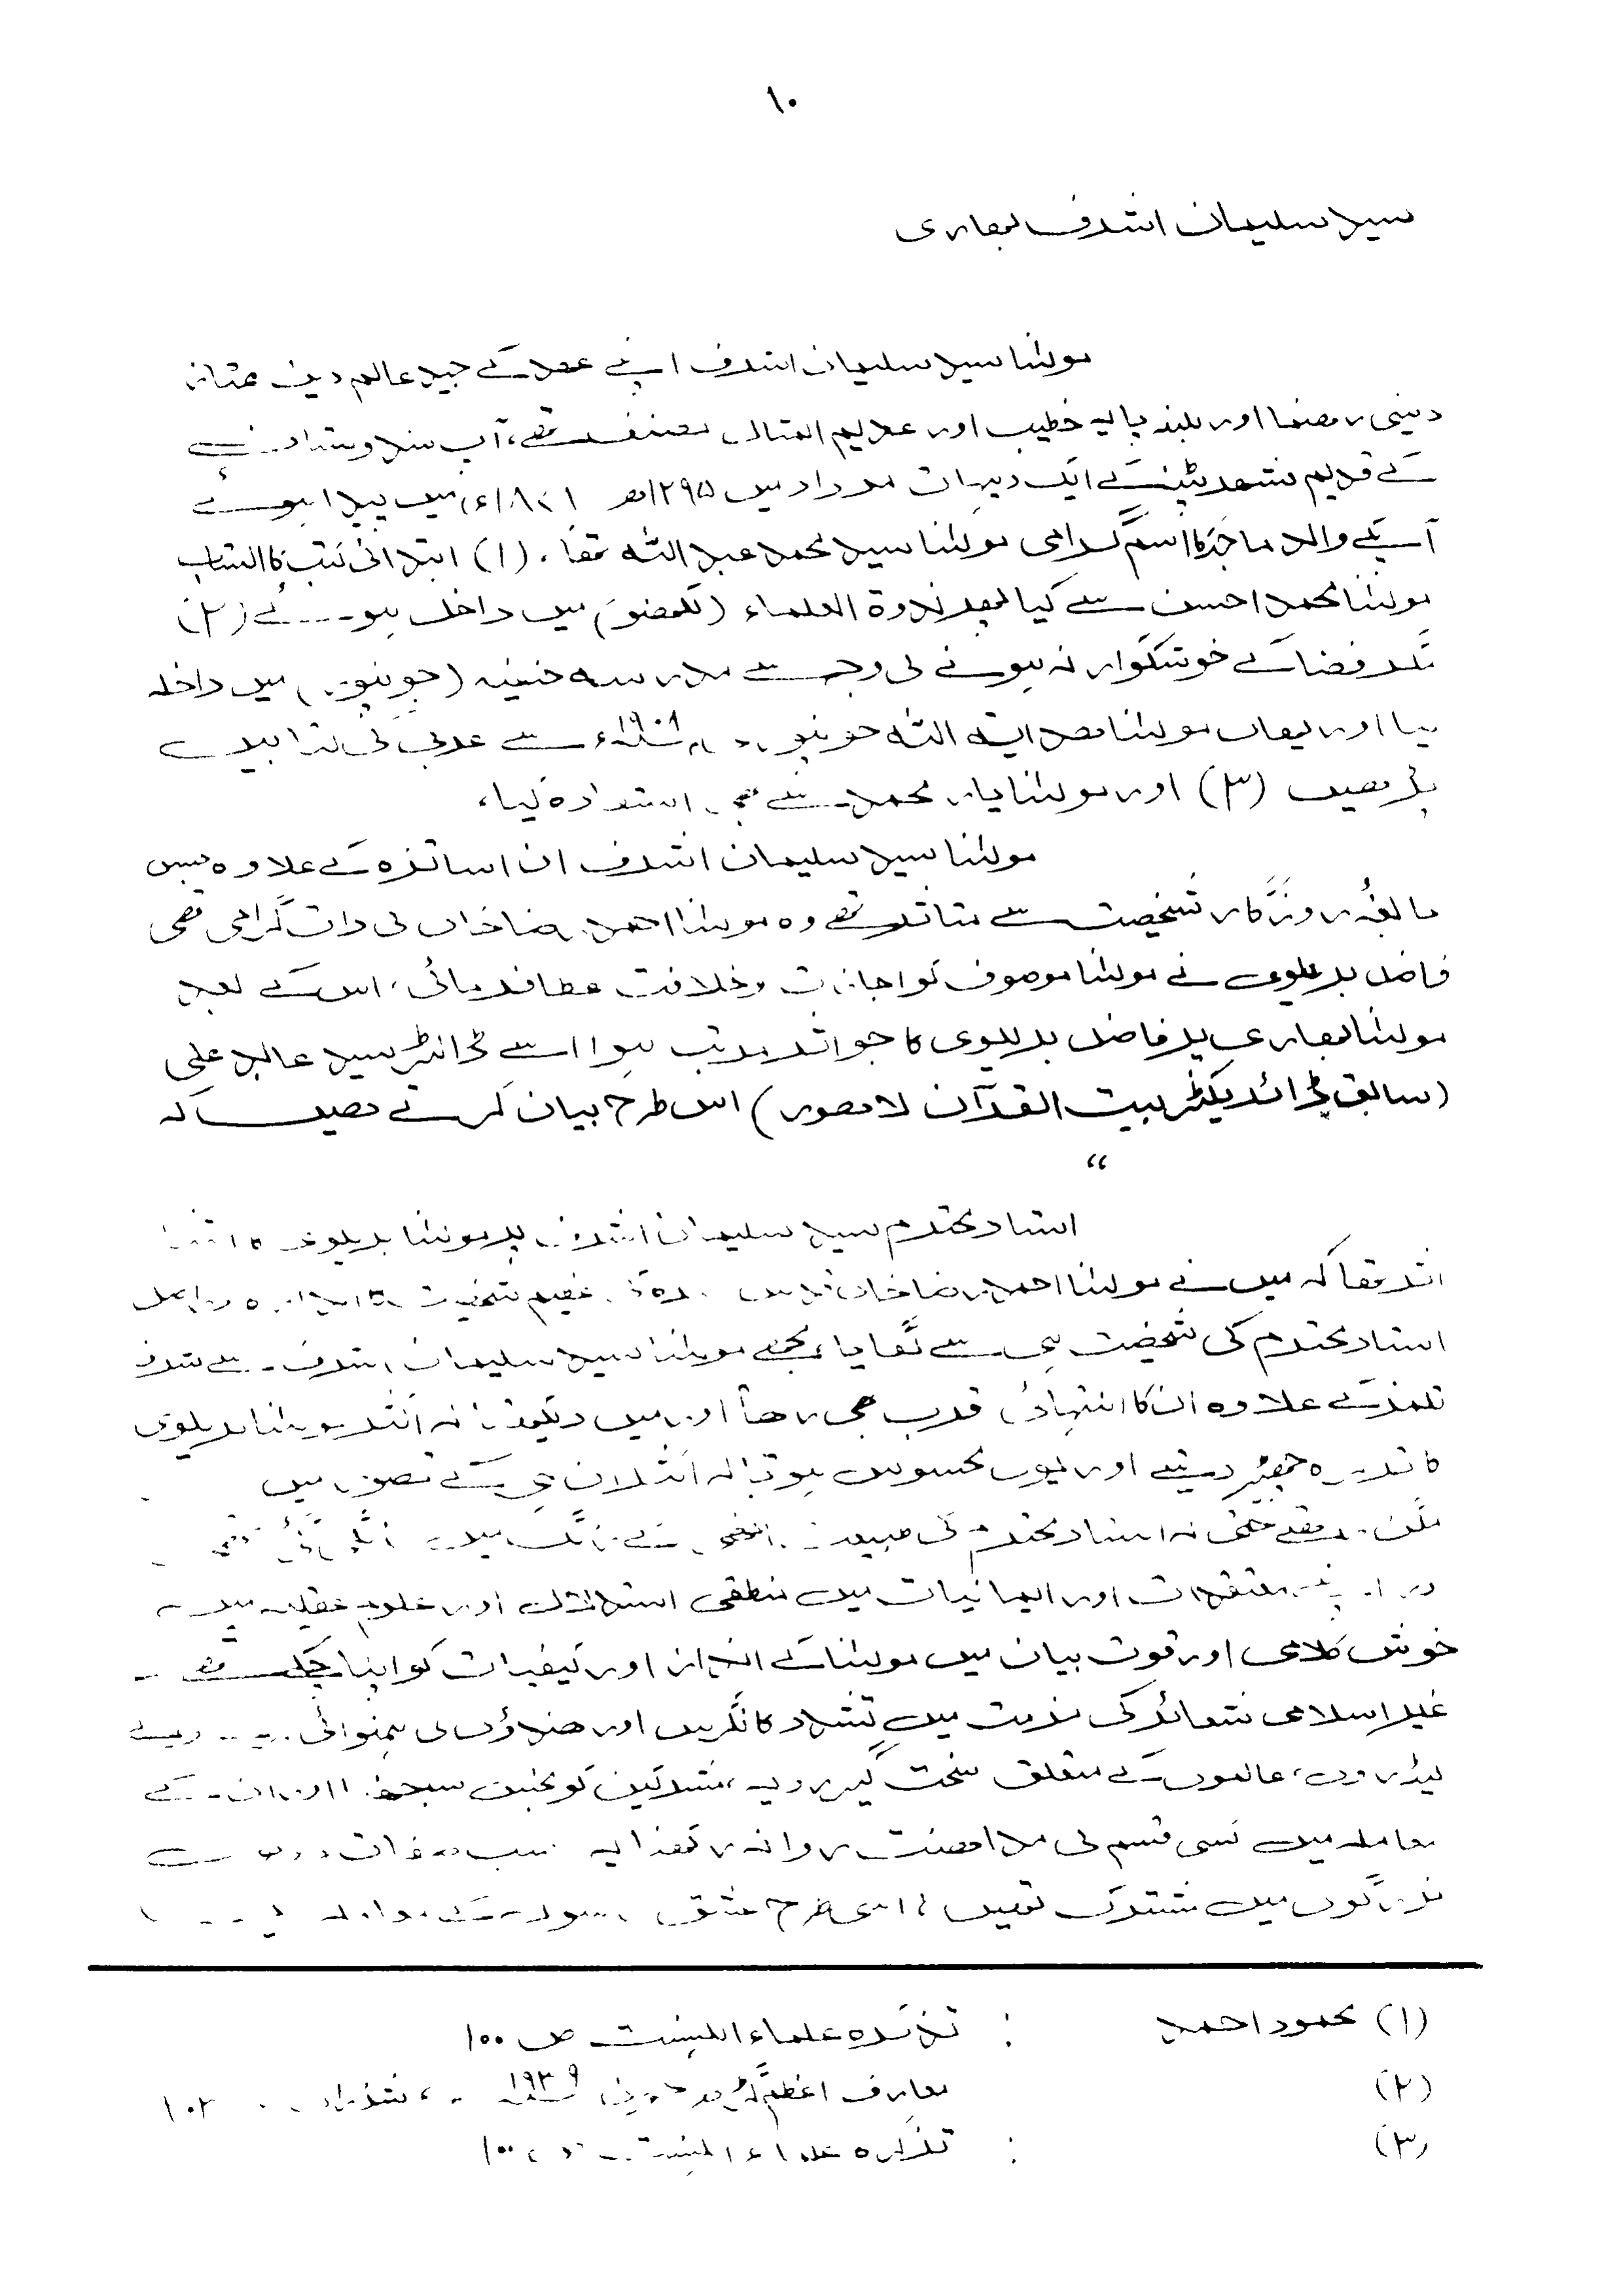 ۱۰
سید سلیمان اشرف بہاری
مولٰنا سید سلیمان اشرف اپنے عہد کے جید عالم دین ممتاز
دینی رہنما اور بلند پایہ خطیب اور عدیم المثال مصنف تھے، آپ ہندوستان
کے قدیم شہر پٹنہ کے ایک دیہات مرداد میں ۱۲۹۵ھ میں پیدا ہوئے
آپ کے والد ماجد کا اسم گرامی مولٰنا سید محمد عبد اللہ تھا، (۱) ابتدائی کتب کا اکتساب
مولٰنا محمد احسن سے کیا بعد ندوۃ العلماء (لکھنو) میں داخل ہوئے (۲)
مگر فضا کے خوشگوار نہ ہونے کی وجہ سے مدرسہ حنفیہ (جونپور) میں داخلہ
لیا اور یہاں مولٰنا ہدایت اللہ جونپوری م ۱۹۰۸ء سے عربی کی کتابیں
پڑھیں (۳) اور مولٰنا یار محمد سے بھی استفادہ کیا،
مولٰنا سید سلیمان اشرف ان اساتذہ کے علاوہ جس
نابغہ روزگار شخصیت سے متاثر تھے وہ مولٰنا احمد رضا خاں کی ذات گرامی تھی
فاضل بریلوی نے مولٰنا موصوف کو اجازت و خلافت عطا فرمائی، اس کے بعد
مولٰنا بہاری پر فاضل بریلوی کا جو اثر مرتب ہوا اسے ڈاکٹر سید عابد علی
(سابق ڈائریکٹر بیت القرآن لاہور) اس طرح بیان کرتے ہیں کہ
"
استاد محترم سید سلیمان اشرف پر مولٰنا بریلوی کا اتنا
اثر تھا کہ میں نے مولٰنا احمد رضا خاں قدس سرہ کی عظیم شخصیت کا اندازہ دراصل
استاد محترم کی شخصیت ہی سے لگایا، مجھے مولٰنا سید سلیمان اشرف سے شرف
تلمذ کے علاوہ ان کا انتہائی قرب بھی رہا اور میں دیکھتا کہ اکثر مولٰنا بریلوی
کا تذکرہ چھیڑ دیتے اور یوں محسوس ہوتا کہ اکثر ان ہی کے تصور میں
مگن رہتے حتی کہ استاد محترم کی طبیعت انھی کے رنگ میں رنگی گئی تھی
اور اپنے معتقدات اور ایمانیات میں منطقی استدلال اور علوم عقلیہ میں
خوش کلامی اور قوت بیان میں مولٰنا کے انداز اور کیفیات کو اپنا چکے تھے
غیر اسلامی شعائر کی مذمت میں تشدد کانگریس اور ھندوؤں کی ہمنوائی
لیڈروں، عالموں کے متعلق سخت گیر رویہ، مشرکین کو نجس سمجھنا اور ان کے
معاملہ میں کسی قسم کی مداھنت روا نہ رکھنا یہ سب صفات دونوں
بزرگوں میں مشترک تھیں، اسی طرح عشق رسول کے
(۱) محمود احمد : تذکرہ علماء اہلسنت ص ۱۰۰
(۲) معارف اعظم گڑھ جون ۱۹۳۹ء، شذرات ۱۰۲
(۳) : تذکرہ علماء اہلسنت ص ۱۰۰